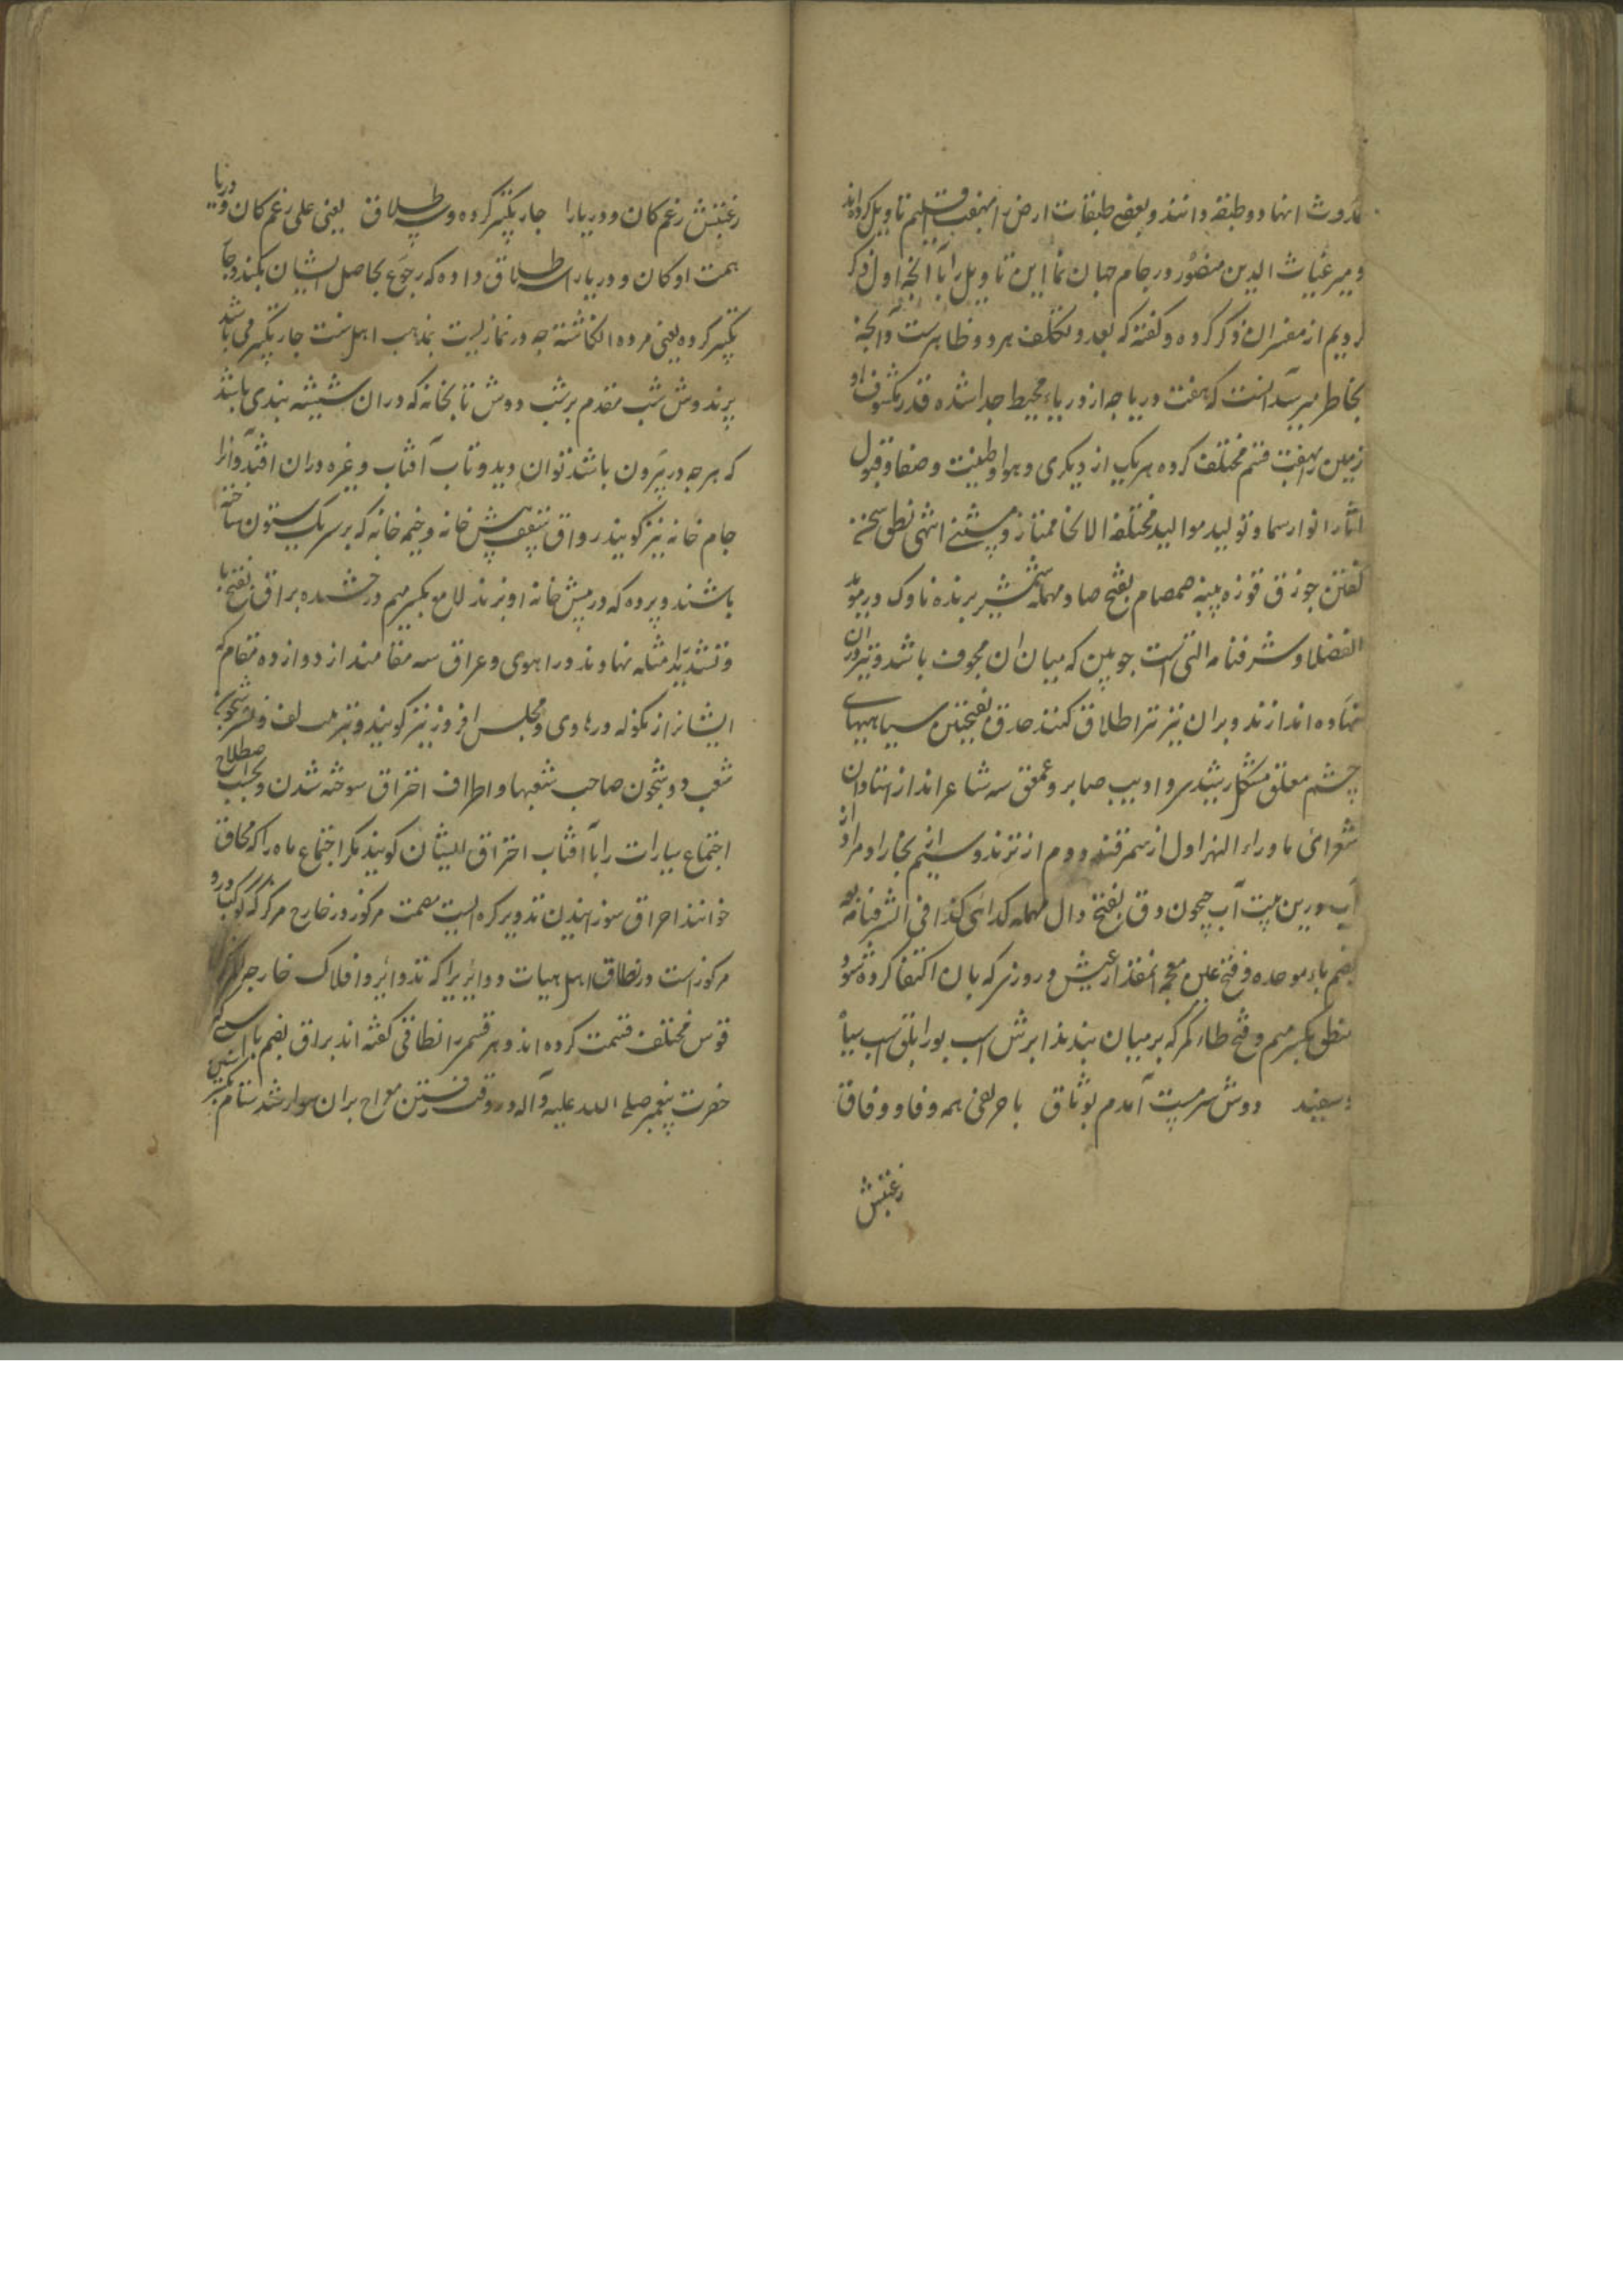 حدوث اینها دو طبقه دانند و بعضی طبقات ارض را بهفت اقلیم تاویل کرده اند
و میر غیاث الدین منصور در جام جهان نما این تاویل را با آنچه اول ذکر
کردیم از مفسران ذکر کرده و گفته که بعد و تکلف هر دو ظاهرست و آنچه
بخاطر میرسد آنست که هفت دریاچه از دریاء محیط جدا شده قدر مکشوف از
زمین را بهفت قسم مختلف کرده هریک از دیگری و هوا و طینت و صفا و قبول
اثار انوار سما و تولید موالید مختلفة الانحا ممتاز انتهی نطق سخن
گفتن جوزق قوزه پنبه صمصام بفتح صاد مهمله شمشیر برنده ناوک در موید
الفضلا و شرفنامه التی است چوبین که میان ان مجوف باشد و تیر در ان
نهاده اندازند و بران نیز تیر اطلاق کنند حدق بفتحتین سیاهیهای
چشم مغلق مشکل رشیدی و ادیب صابر و عمعق سه شاعر اند از استادان
شعرای ماوراء النهر اول از سمرقند دوم از ترمذ و سیم از بخارا و مراد از
آب درین بیت آب جیحون دق بفتح دال مهمله گدائی کذا فی الشرفنامه
بضم باء موحده و فتح غین معجمه انقدر از عیش و روزی که بان اکتفا کرده شود
منطق بکسر میم و فتح طاء کمر که بر میان بندند ابرش اسب بور ابلق اسب سیاه
و سفید دوش سرمست آمدم بوثاق با حریفی همه وفا و وفاق
رغبتش
رغبتش رغم کان و دریا را چار تکبیر کرده و سه طلاق یعنی علی رغم کان و دریا
همت او کان و دریا را سه طلاق داده که رجوع بحاصل ایشان نکند و چار
تکبیر کرده یعنی مرده انگاشته چه در نماز میت بمذهب اهل سنت چار تکبیر می باشد
پرندوش شب مقدم بر شب دوش تابخانه که دران شیشه بندی باشد
که هر چه در بیرون باشد توان دید و تاب آفتاب و غیره دران افتد و آنرا
جام خانه نیز گویند رواق سقف پیش خانه و خیمه خانه که بر سر یک ستون ساخته
باشند و پرده که در پیش خانه اویزند لامع بکسر میم درخشنده براق بفتح با
و تشدید را مثله نهاوند و راهوی و عراق سه مقامند از دوازده مقام که
ایشانرا زنگوله و رهاوی و مجلس افروز نیز گویند و بترتیب لف و نشر
شعب ذو شجون صاحب شعبها و اطراف احتراق سوخته شدن و بحسب اصطلاح
اجتماع سیارات را با آفتاب احتراق ایشان گویند مگر اجتماع ماه را که محاق
خوانند احراق سوزانیدن تدویر کره ایست مصمت مرکوز در خارج مرکز که کوکب درو
مرکوز است و نطاق اهل هیات دوایری را که تدوایر و افلاک خارجه المرکز
قوس مختلف قسمت کرده اند و هر قسم را نطاقی گفته اند براق بضم با
حضرت پیغمبر صلی الله علیه و آله در وقت رفتن معراج بران سوار شد ستام بکسر